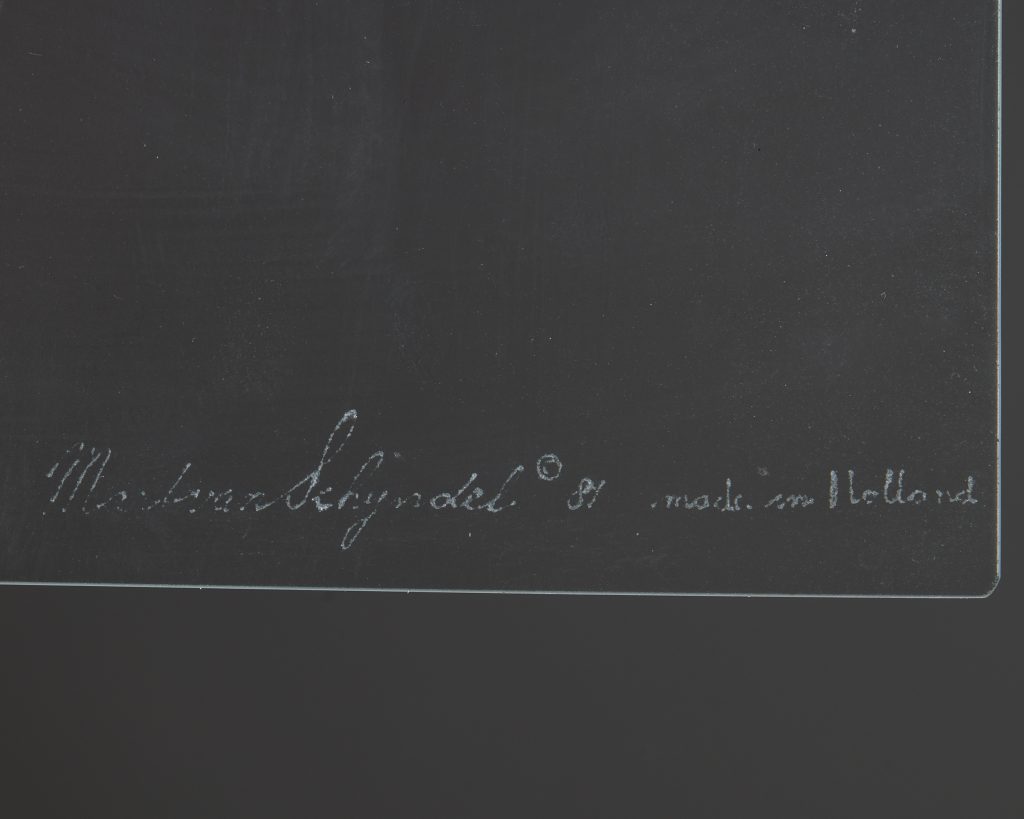 Mart van Schijndel © 81 made in Holland